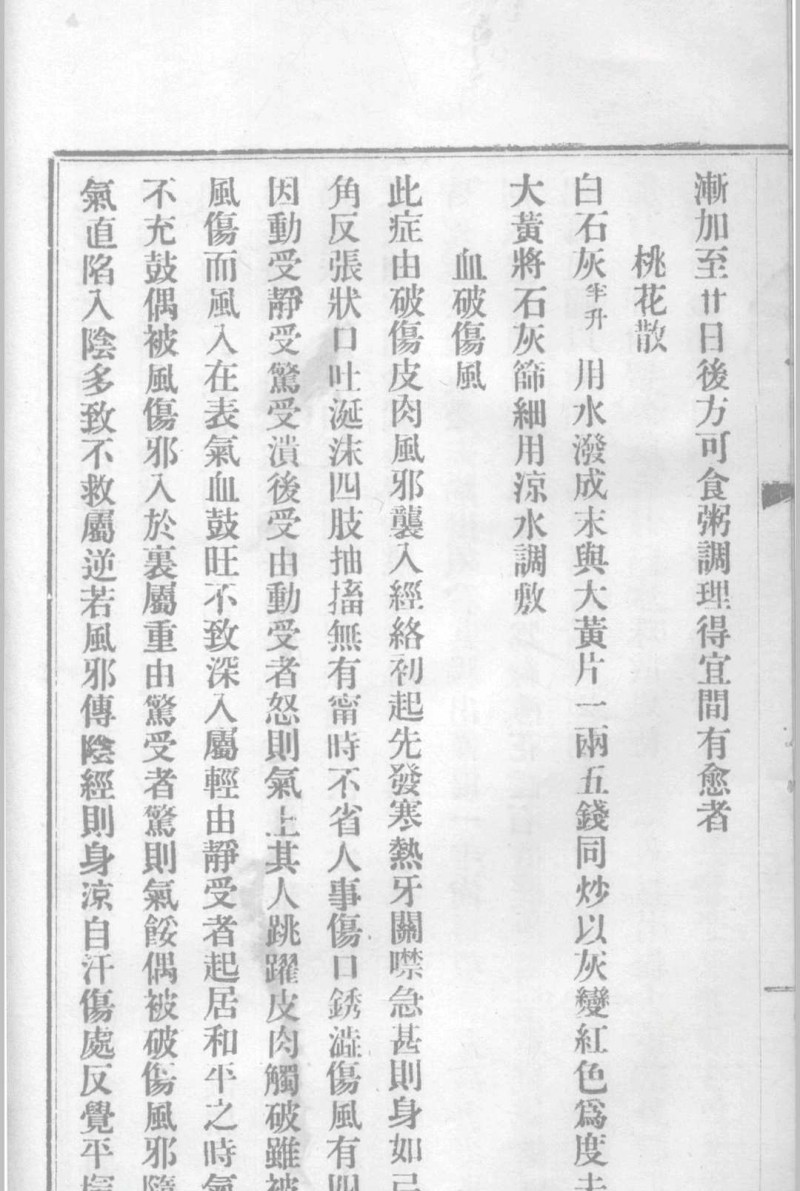 漸加至廿日後方可食粥調理得宜間有愈者
桃花散
白石灰半升用水潑成末與大黃片一兩五錢同炒以灰變紅色爲度去
大黃將石灰篩細用涼水調敷
血破傷風
此症由破傷皮肉風邪襲入經絡初起先發寒熱牙關噤急甚則身如
角反張狀口吐涎沫四肢抽搐無有甯時不省人事傷口銹澁傷風有四
因動受靜受驚受潰後受由動受者怒則氣上其人跳躍皮肉觸破雖被
風傷而風入在表氣血鼓旺不致深入屬輕由靜受者起居和平之時氣
不充鼓偶被風傷邪入於裏屬重由驚受者驚則氣餒偶被破傷風邪隨
氣直陷入陰多致不救屬逆若風邪傳陰經則身涼自汗傷處反覺平